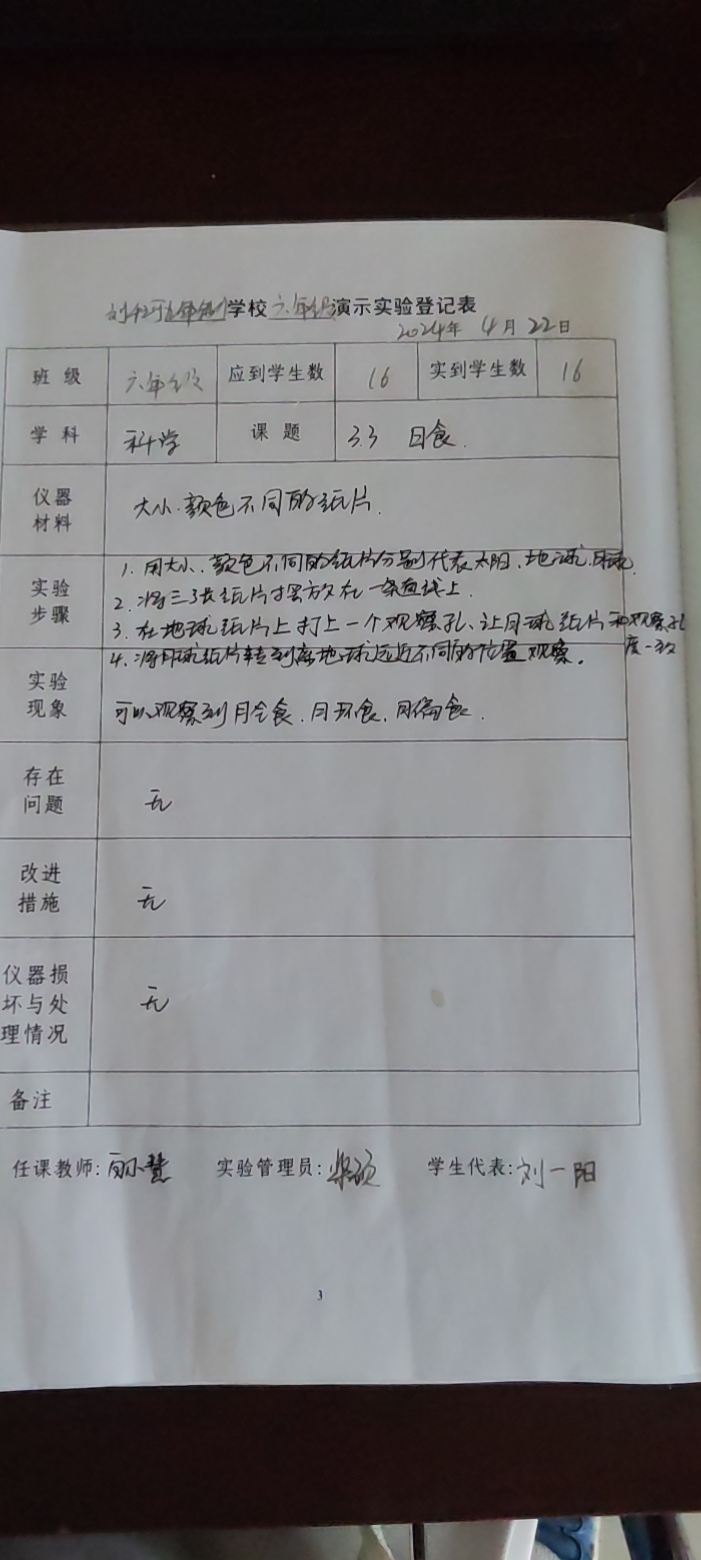 学校六年级演示实验登记表
2024年 4月 22日
班级 六年级 应到学生数 16 实到学生数 16
学科 科学 课题 3.3 日食.
仪器
材料
大小.颜色不同的纸片.
实验
步骤
1. 用大小、颜色不同的纸片分别代表太阳、地球、月球.
2. 将三张纸片摆放在一条直线上.
3. 在地球纸片上打上一个观察孔、让月球纸片和观察孔
度一致
4. 将月球纸片转到离地球远近不同的位置观察.
实验
现象
可以观察到日全食.日环食.日偏食.
存在
问题
无
改进
措施
无
仪器损
坏与处
理情况
无
备注
任课教师: 实验管理员: 学生代表: 刘一阳
3